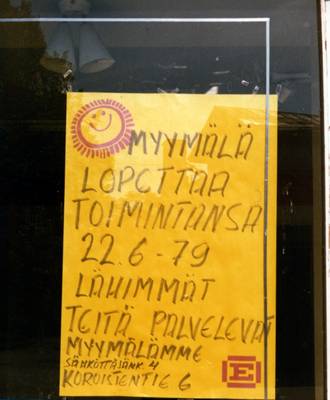 MYYMÄLÄ
LOPETTAA
TOIMINTANSA
22.6-79
LÄHIMMÄT
TEITÄ PALVELEVAT
MYYMÄLÄMME
SÄHKÖTTÄJÄNK. 4
KOROISTENTIE 6
E